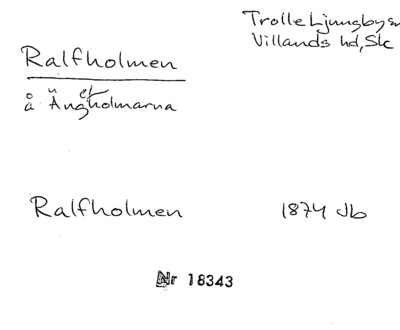 Trolle Ljungby sn
Villands hd, Skc
Ralfholmen
å Ängelholmarna
Ralfholmen
1874 Jb
Nr 18343